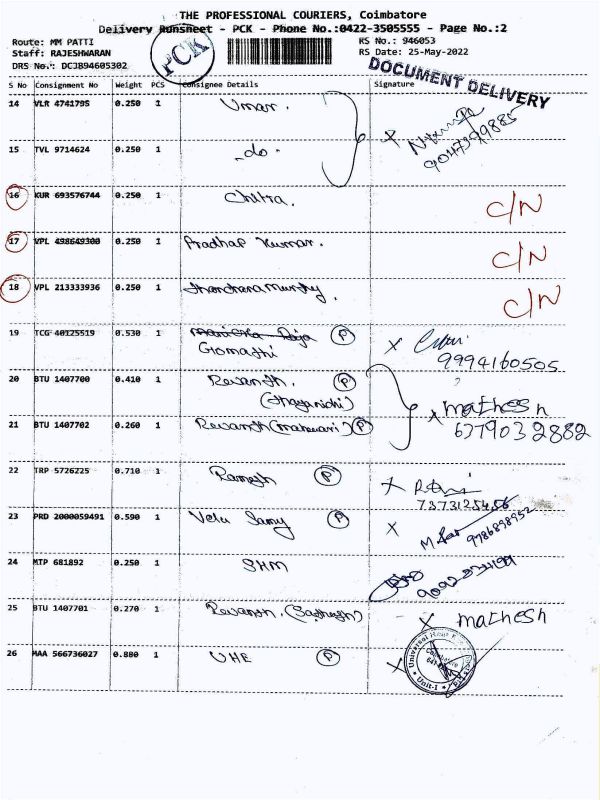 THE PROFESSIONAL COURIERS, Coimbatore
Delivery Runsheet - PCK - Phone No.:0422-3505555 - Page No.:2
Route: MM PATTI
RS No.: 946053
Staff: RAJESHWARAN
RS Date: 25-May-2022
DRS No.: DCJB94605302
PCK
DOCUMENT DELIVERY
S No Consignment No Weight PCS Consignee Details Signature
14 VLR 4741795 0.250 1 Umar.
9047399885
15 TVL 9714624 0.250 1 -do-
16 KUR 693576744 0.250 1 Chitra. C/N
17 VPL 498649300 0.250 1 Pradhap Kumar. C/N
18 VPL 213333936 0.250 1 C/N
19 TCG 40125519 0.530 1 Manicka Raja P
Gomathi 9994160505
20 BTU 1407700 0.410 1 Revanth. P
(Thayanidhi) mathesh
21 BTU 1407702 0.260 1 Revanth (maheswari) P 6379032882
22 TRP 5726225 0.710 1 Ramesh P
7373125456
23 PRD 2000059491 0.590 1 Velu Samy P
9786898952
24 MTP 681892 0.250 1 SHM
25 BTU 1407701 0.270 1 Revanth. (Sathish) mathesh
26 MAA 566736027 0.880 1 UHE P
Unit-1